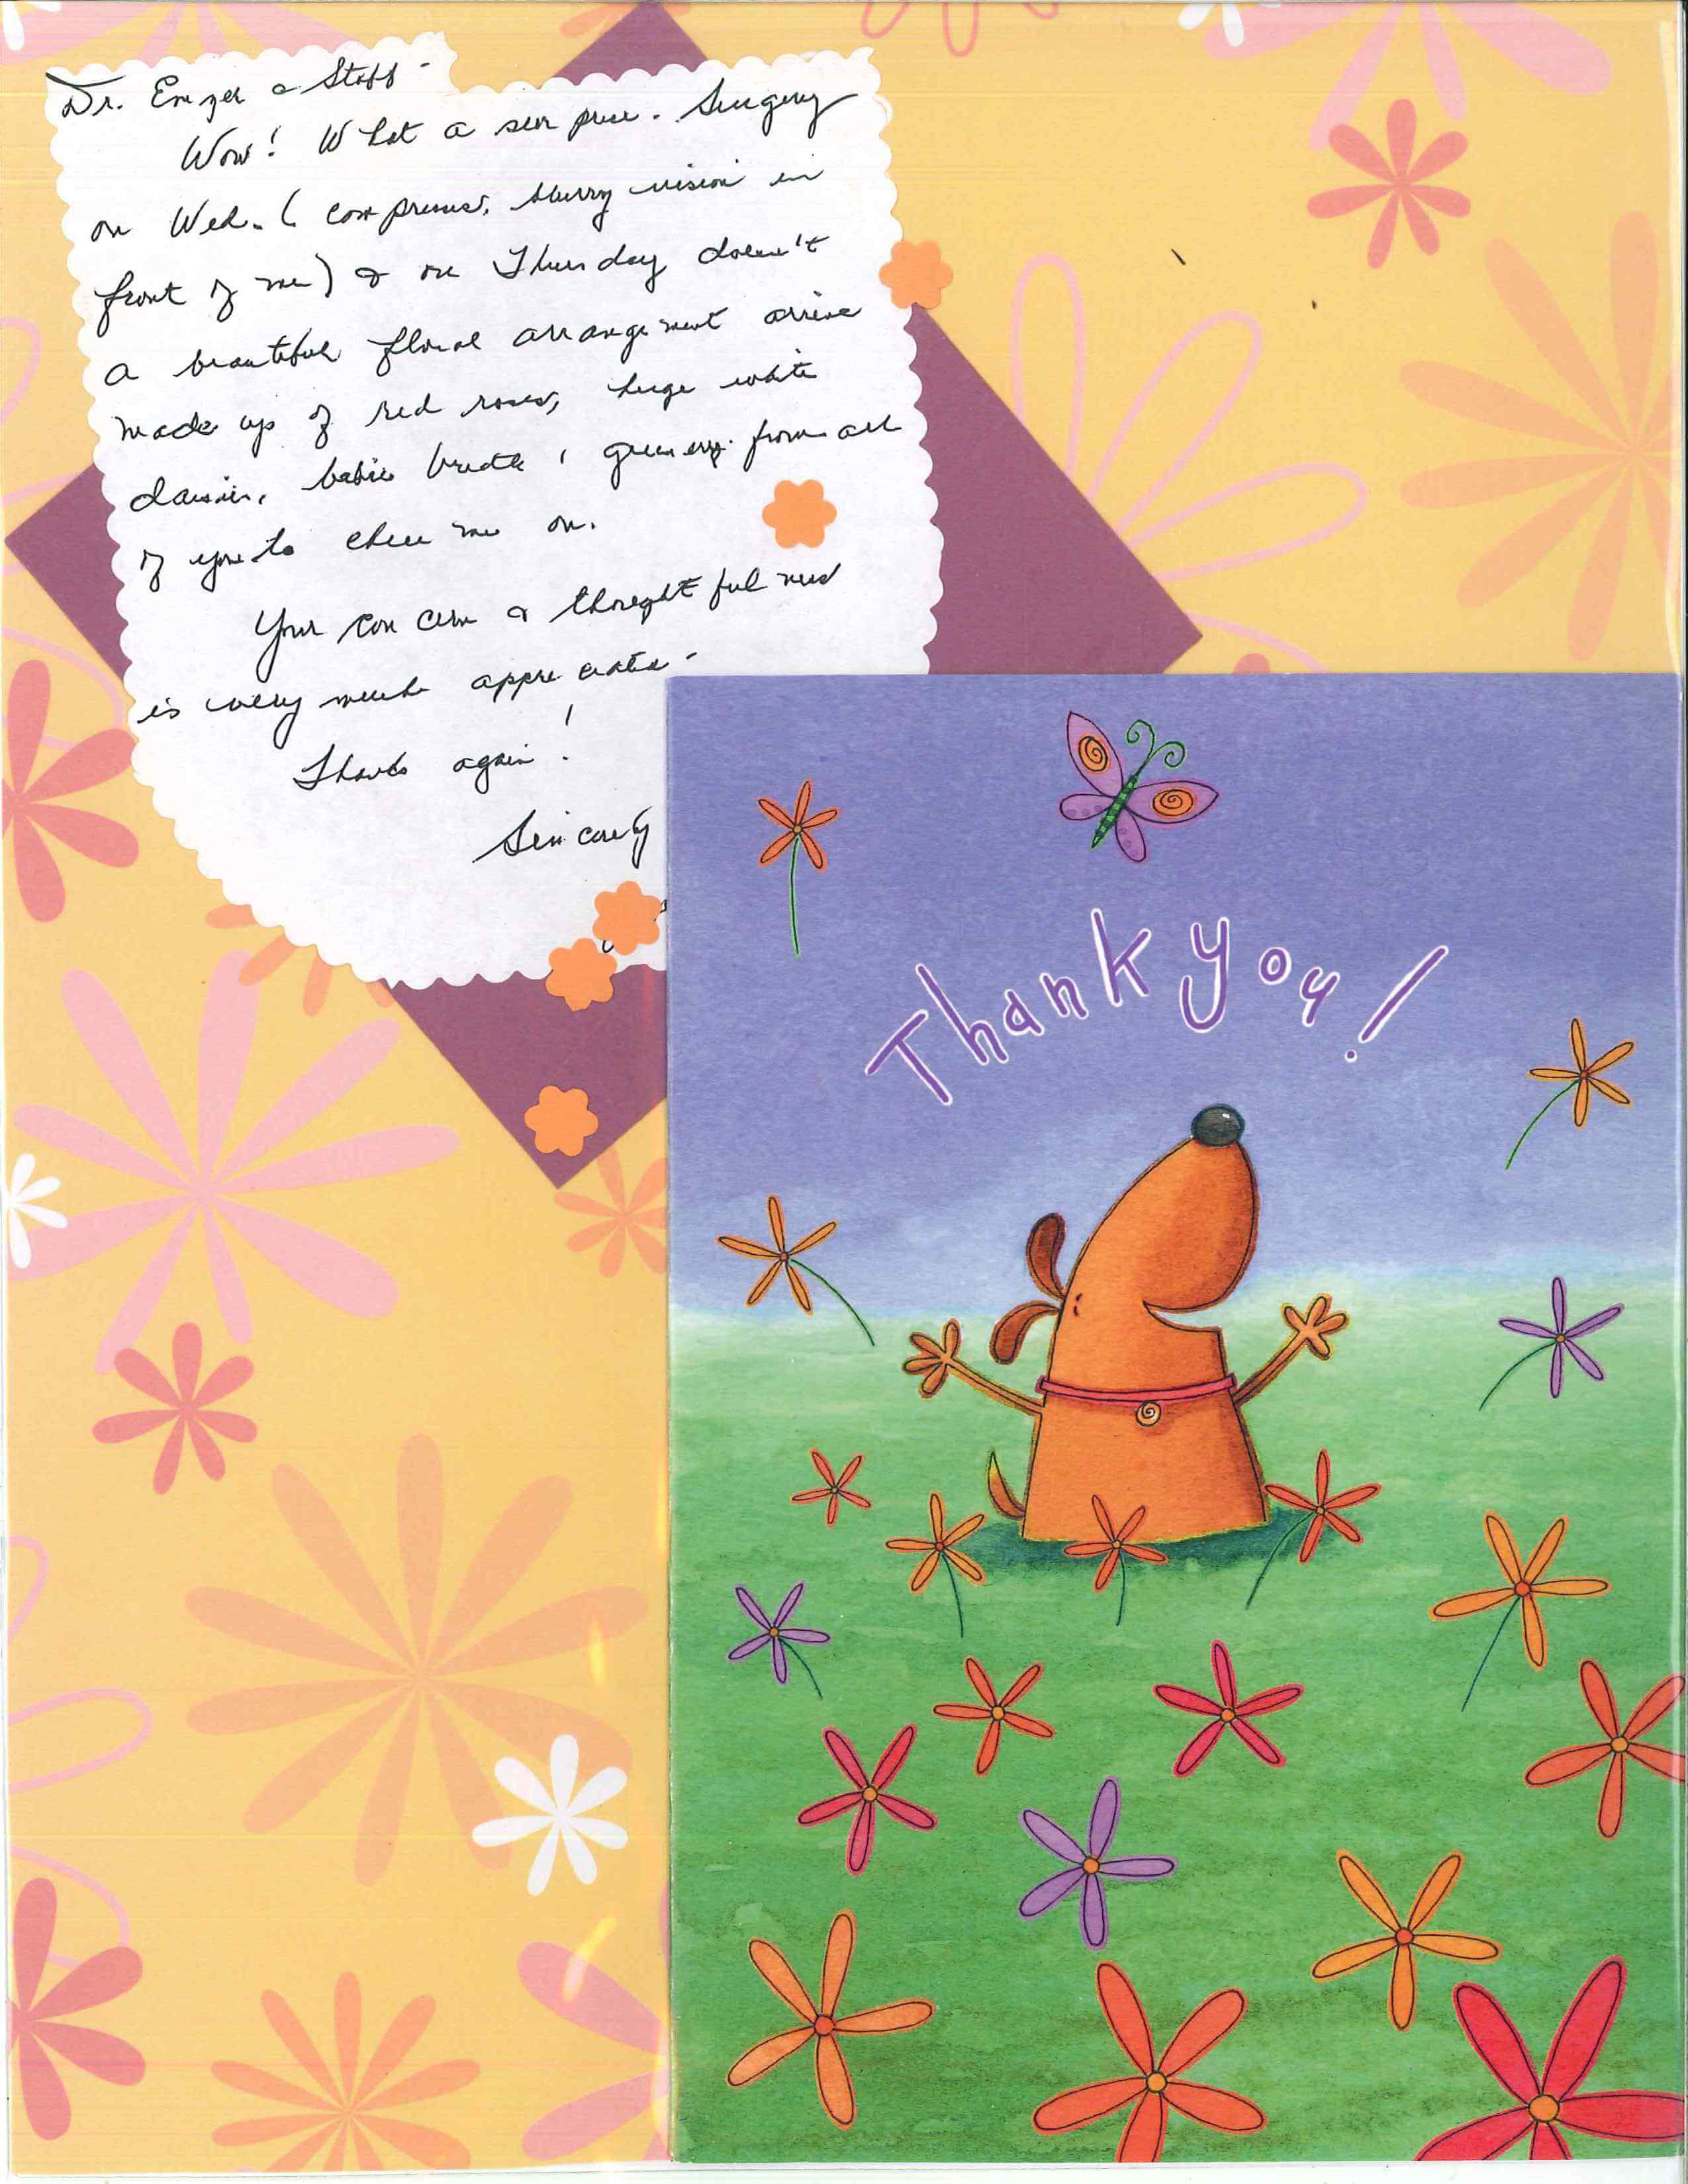 Dr. Enzer & Staff -
Wow! What a surprise. Surgery
on Wed. ( compresses, blurry vision in
front of me) & on Thursday doesn't
a beautiful floral arrangement arrive
made up of red roses, huge white
daisies, babies breath, greenery from all
of you to cheer me on.
Your concern & thoughtfulness
is very much appreciated -
Thanks again!
Sincerely
Thank you!